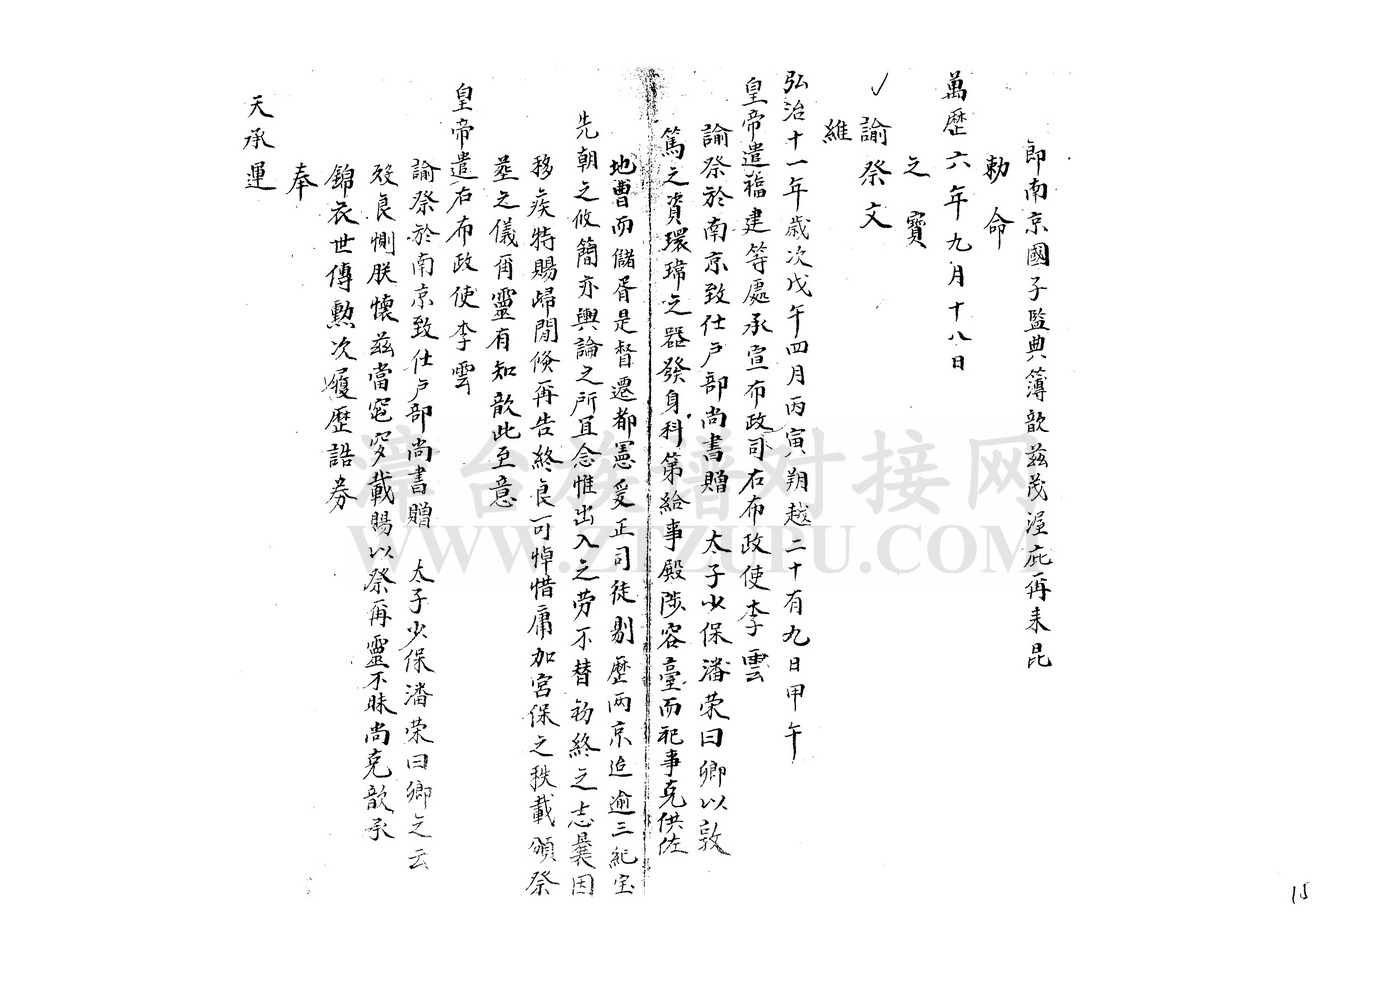 即南京國子監典簿歆茲茂渥庇爾耒昆
勅命
萬歷六年九月十八日
之寶
諭祭文
維
弘治十一年歲次戊午四月丙寅朔越二十有九日甲午
皇帝遣福建等處承宣布政司右布政使李雲
諭祭於南京致仕戶部尚書贈 太子少保潘荣曰卿以敦
篤之資環瑋之器發身科第給事殿陟容臺而祀事克供佐
地曹而儲胥是督遷都憲爰正司徒剔歷兩京迨逾三紀宝
先朝之攸簡亦輿論之所且念惟出入之劳不替初終之志曩因
移疾特賜歸閒倏再告終良可悼惜庸加宮保之秩載頒祭
塟之儀爾靈有知歆此至意
皇帝遣右布政使李雲
諭祭於南京致仕戶部尚書贈 太子少保潘荣曰卿之云
歿良惻朕懷茲當窀穸載賜以祭爾靈不昧尚克歆承
錦衣世傳勲次履歷誥券
奉
天承運
漳台族谱对接网
WWW.ZIZUPU.COM
15